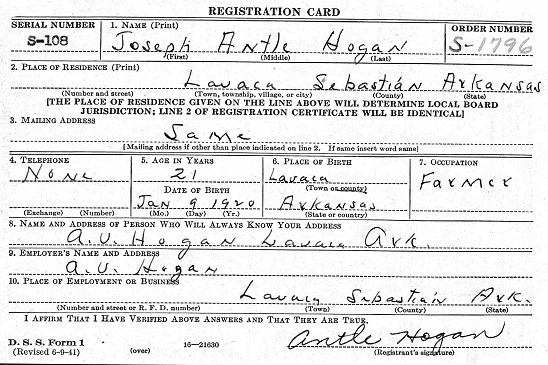 REGISTRATION CARD
SERIAL NUMBER 1. NAME (Print) ORDER NUMBER
S-108 Joseph Antle Hogan S-1796
(First) (Middle) (Last)
2. PLACE OF RESIDENCE (Print)
Lavaca Sebastian Arkansas
(Number and street) (Town, township, village, or city) (County) (State)
[THE PLACE OF RESIDENCE GIVEN ON THE LINE ABOVE WILL DETERMINE LOCAL BOARD
JURISDICTION; LINE 2 OF REGISTRATION CERTIFICATE WILL BE IDENTICAL]
3. MAILING ADDRESS
Same
[Mailing address if other than place indicated on line 2. If same insert word same]
4. TELEPHONE 5. AGE IN YEARS 6. PLACE OF BIRTH 7. OCCUPATION
None 21 Lavaca Farmer
DATE OF BIRTH (Town or county)
Jan 9 1920 Arkansas
(Exchange) (Number) (Mo.) (Day) (Yr.) (State or country)
8. NAME AND ADDRESS OF PERSON WHO WILL ALWAYS KNOW YOUR ADDRESS
A.V. Hogan Lavaca Ark.
9. EMPLOYER'S NAME AND ADDRESS
A.V. Hogan
10. PLACE OF EMPLOYMENT OR BUSINESS
Lavaca Sebastian Ark.
(Number and street or R. F. D. number) (Town) (County) (State)
I AFFIRM THAT I HAVE VERIFIED ABOVE ANSWERS AND THAT THEY ARE TRUE.
D. S. S. Form 1 Antle Hogan
(Revised 6-9-41) (over) 16—21630 (Registrant's signature)